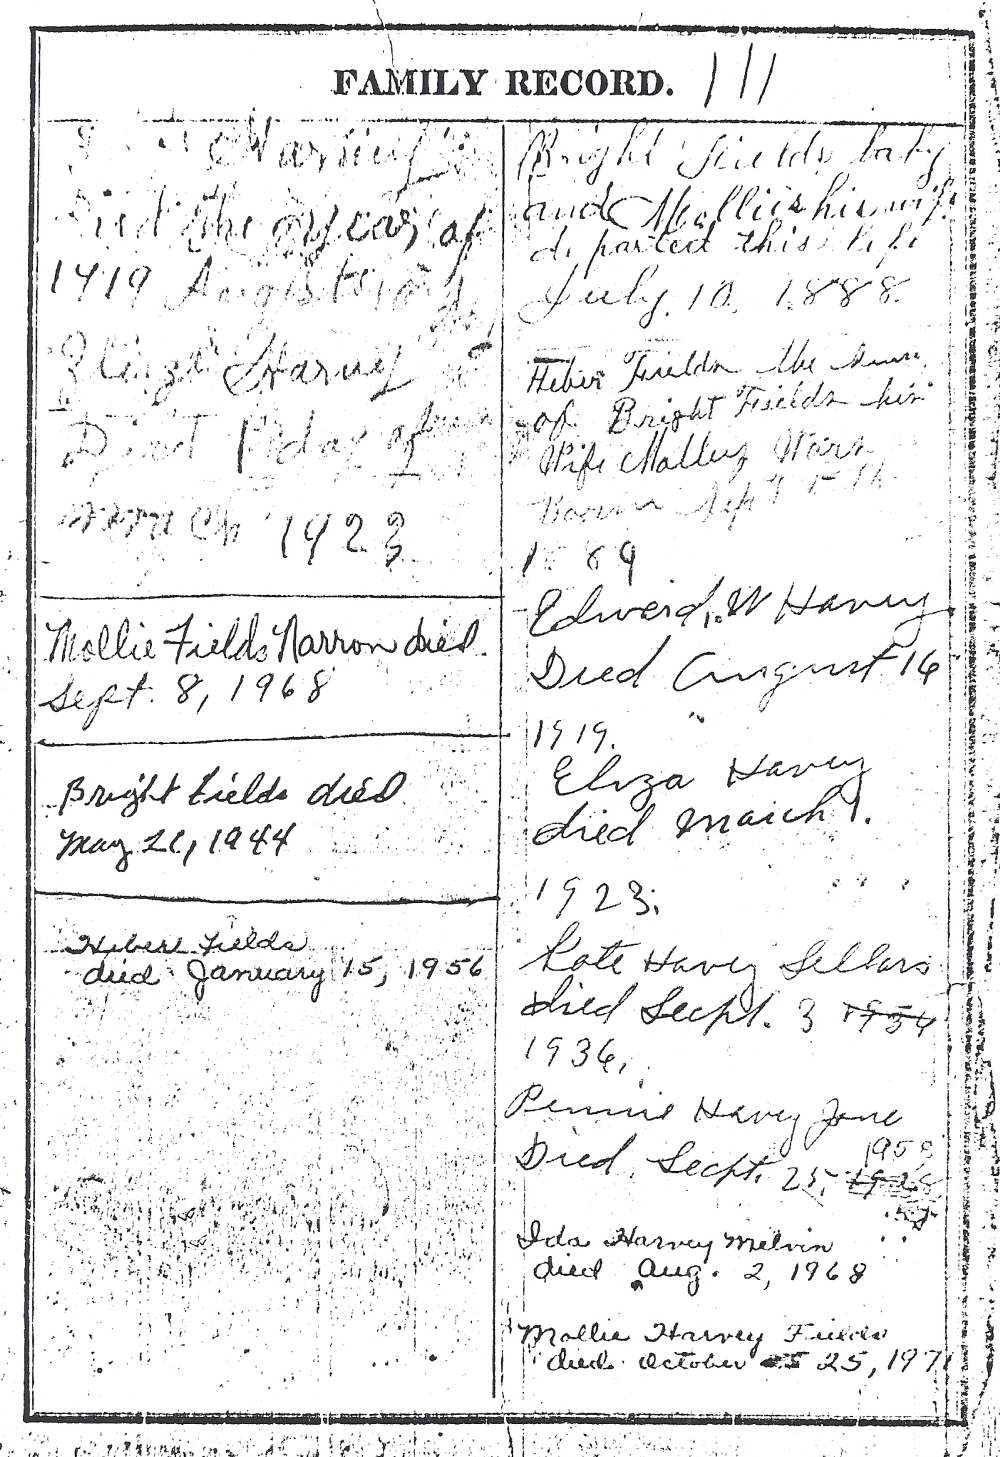 FAMILY RECORD. 111
Harvey
Died the year of
1919 August
Harvey
Died 1 day of
march 1923
Mollie Fields Narron died
Sept. 8, 1968
Bright Fields died
May 21, 1944
Heber Fields
died January 15, 1956
Bright Fields baby
and Mollie his wife
departed this life
July 10, 1888.
Heber Fields the
of Bright Fields his
Wife Malley
Sept
1889
Edward. W Havey
Died August 16
1919.
Eliza Havey
died march 1.
1923.
Kate Havey Sellars
died Secpt. 3 1934
1936,
Pennie Havey Jone
1958
Died. Secpt. 25, 1928
Ida Harvey Melvin
died Aug. 2, 1968
Mollie Harvey Fields
died October 25, 1971